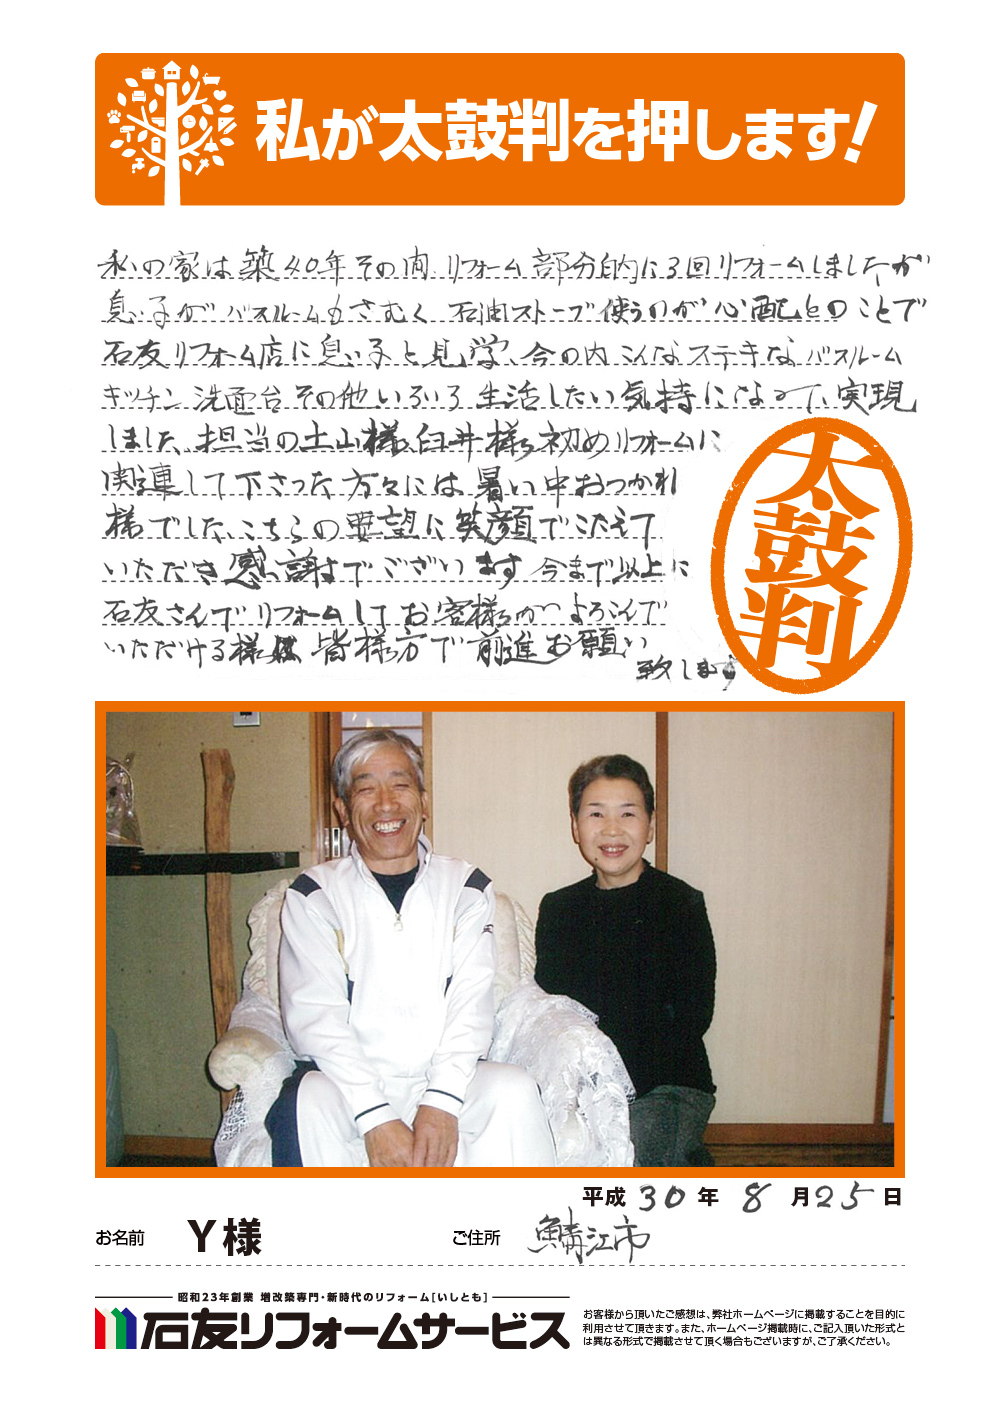 私が太鼓判を押します!
私の家は築40年その間リフォーム部分的に3回リフォームしましたが
息子がバスルームもさむく石油ストーブ使うのが心配とのことで
石友リフォーム店に息子と見学、今の内こんなステキなバスルーム
キッチン洗面台その他いろいろ生活したい気持になって、実現
しました、担当の土山様、臼井様、初めリフォームに
関連して下さった方々には暑い中おつかれ
様でした、こちらの要望に笑顔でこたえて
いただき感謝までございます今まで以上に
石友さんでリフォームしてお客様がよろこんで
いただける様に皆様方で前進お願い
致します
太鼓判
平成30年8月25日
お名前 Y様 ご住所 鯖江市
昭和23年創業 増改築専門・新時代のリフォーム[いしとも]
石友リフォームサービス
お客様から頂いたご感想は、弊社ホームページに掲載することを目的に
利用させて頂きます。また、ホームページ掲載時に、ご記入頂いた形式と
は異なる形式で掲載させて頂く場合もございますが、ご了承ください。